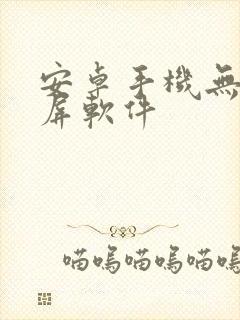 安卓手機無
屏軟件
喵嗚喵嗚喵嗚